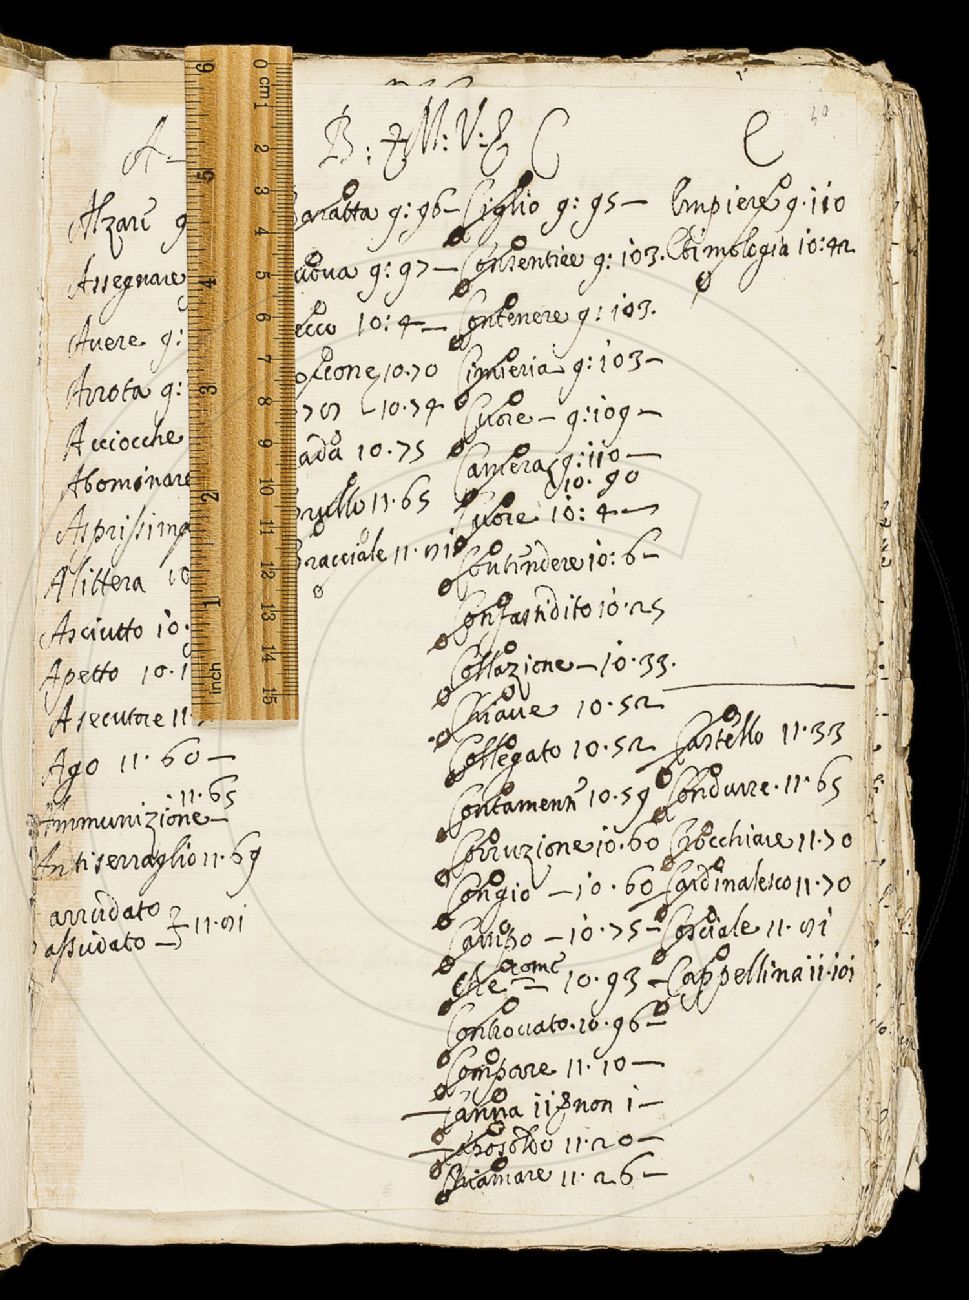 30
A
Alzare g
Assegnare
Auere g:
Arrota g:
Acciocche
Abominare
Asprissima
Alittera 10
Asciutto 10.
Apetto 10.1
Asecutore 11.
Ago 11.60
11.65
Immunizione
Antiserraglio 11.69
arrudato
assudato 11.91
B: M: V: E
aratta g: 96
uova g: 97
ecco 10: 4
10.70
10.74
ada 10.75
rullo 11.65
Bracciale 11.91
C
Ciglio g: 95
Consentire g: 103.
Contenere g: 103.
Cimieria g: 103
Cuore g: 109
Camera g: 110
10.90
Cuore 10: 4
Contendere 10: 6
Confastidito 10.25
Collazione 10.33.
Chiave 10.52
Collegato 10.52
10.59
Corruzione 10.60
Congio 10.60
Campo 10.75
Che come 10.93
Controuato 10.96
Compare 11.10
Canna 11 non 1
Caposoldo 11.20
Chiamare 11.26
E
Empiere g. 110
Etimologia 10: 42
Castello 11.33
Condurre 11.65
Crocchiare 11.70
Cardinalesco 11.70
Cosciale 11.91
Cappellina 11.101
0 cm 1 2 3 4 5 6 7 8 9 10 11 12 13 14 15
inch 1 2 3 4 5 6